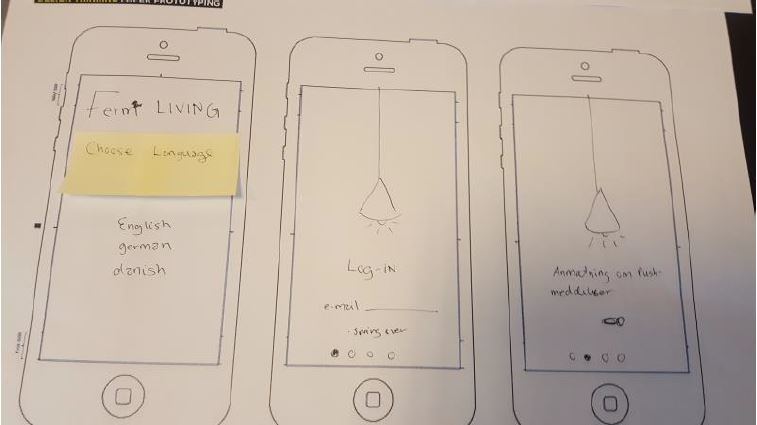 DESIGN THINKING PAPER PROTOTYPING
Ferm LIVING
Choose Language
English
german
danish
Log-IN
e-mail
spring over
Anmodning om Push-
meddelelser